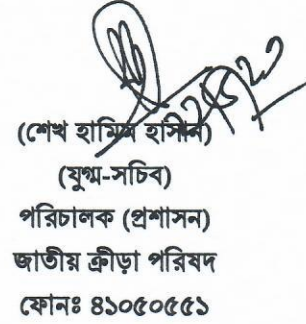 (শেখ হামিম হাসান)
(যুগ্ম-সচিব)
পরিচালক (প্রশাসন)
জাতীয় ক্রীড়া পরিষদ
ফোনঃ ৪১০৫০৫৫১